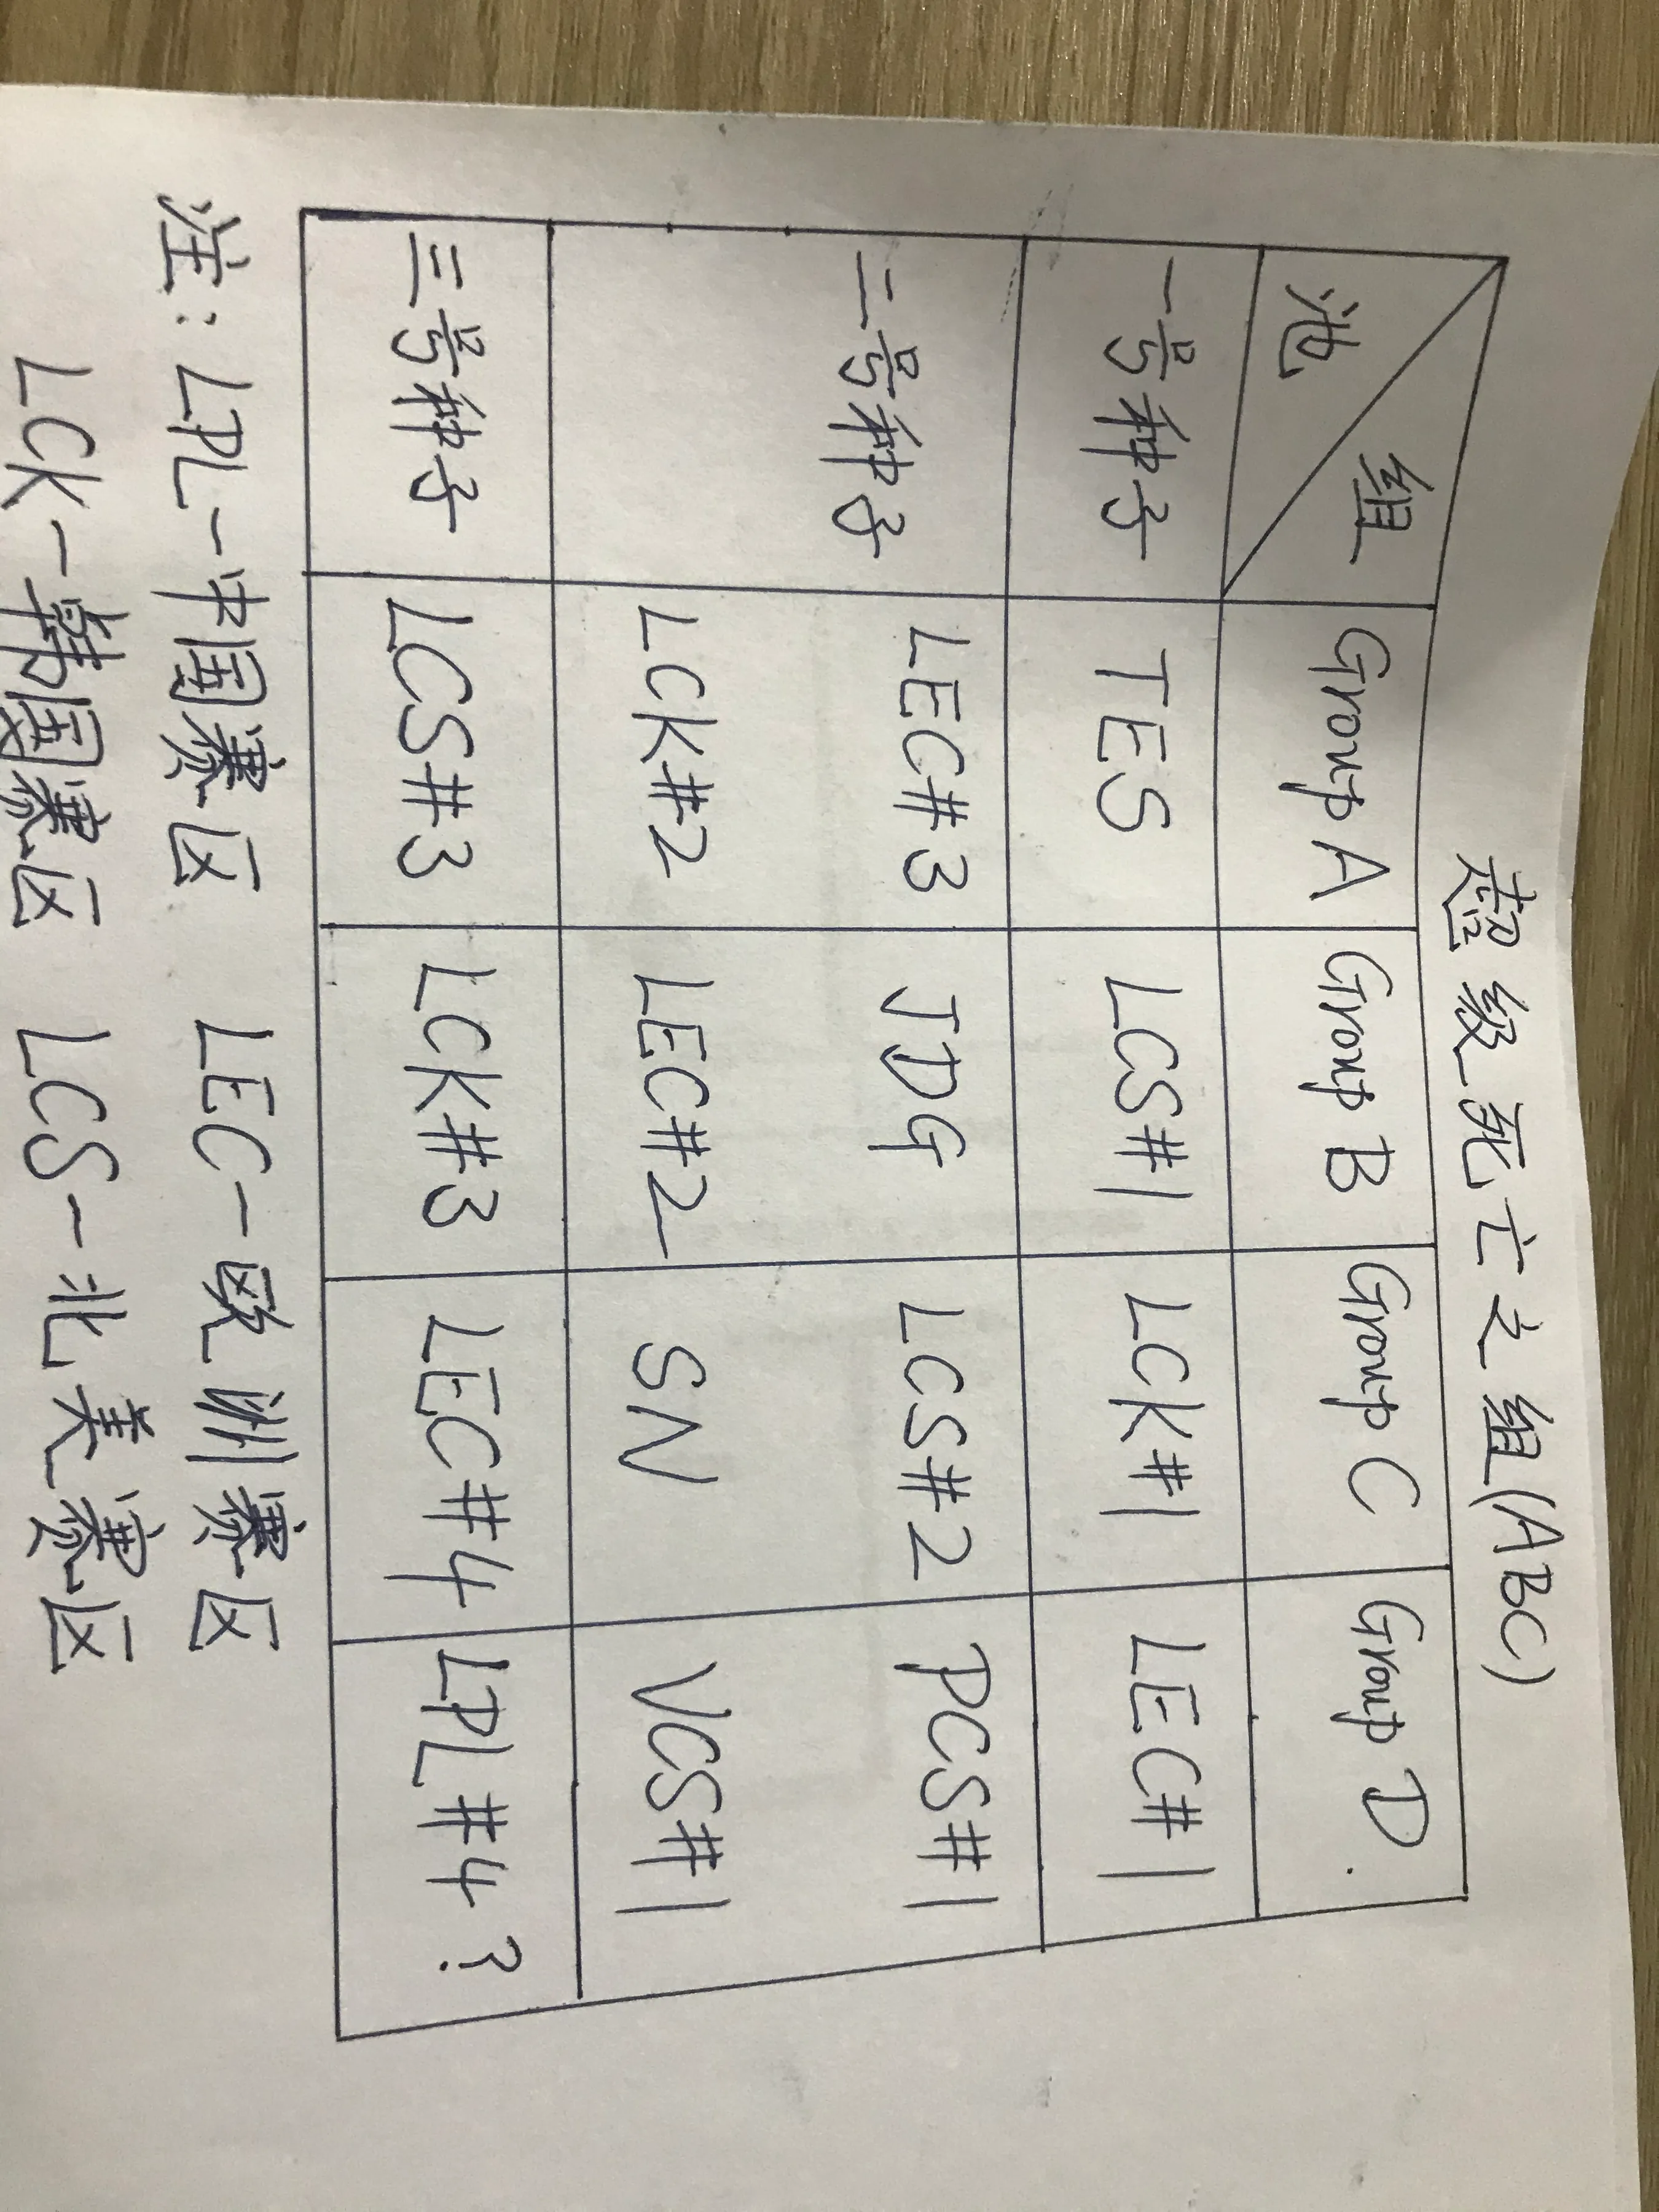 超级死亡之组(ABC)
组
池
Group A Group B Group C Group D.
一号种子 TES LCS#1 LCK#1 LEC#1
二号种子 LEC#3 JDG LCS#2 PCS#1
LCK#2 LEC#2 SN VCS#1
三号种子 LCS#3 LCK#3 LEC#4 LPL#4?
注: LPL-中国赛区 LEC-欧洲赛区
LCK-韩国赛区 LCS-北美赛区